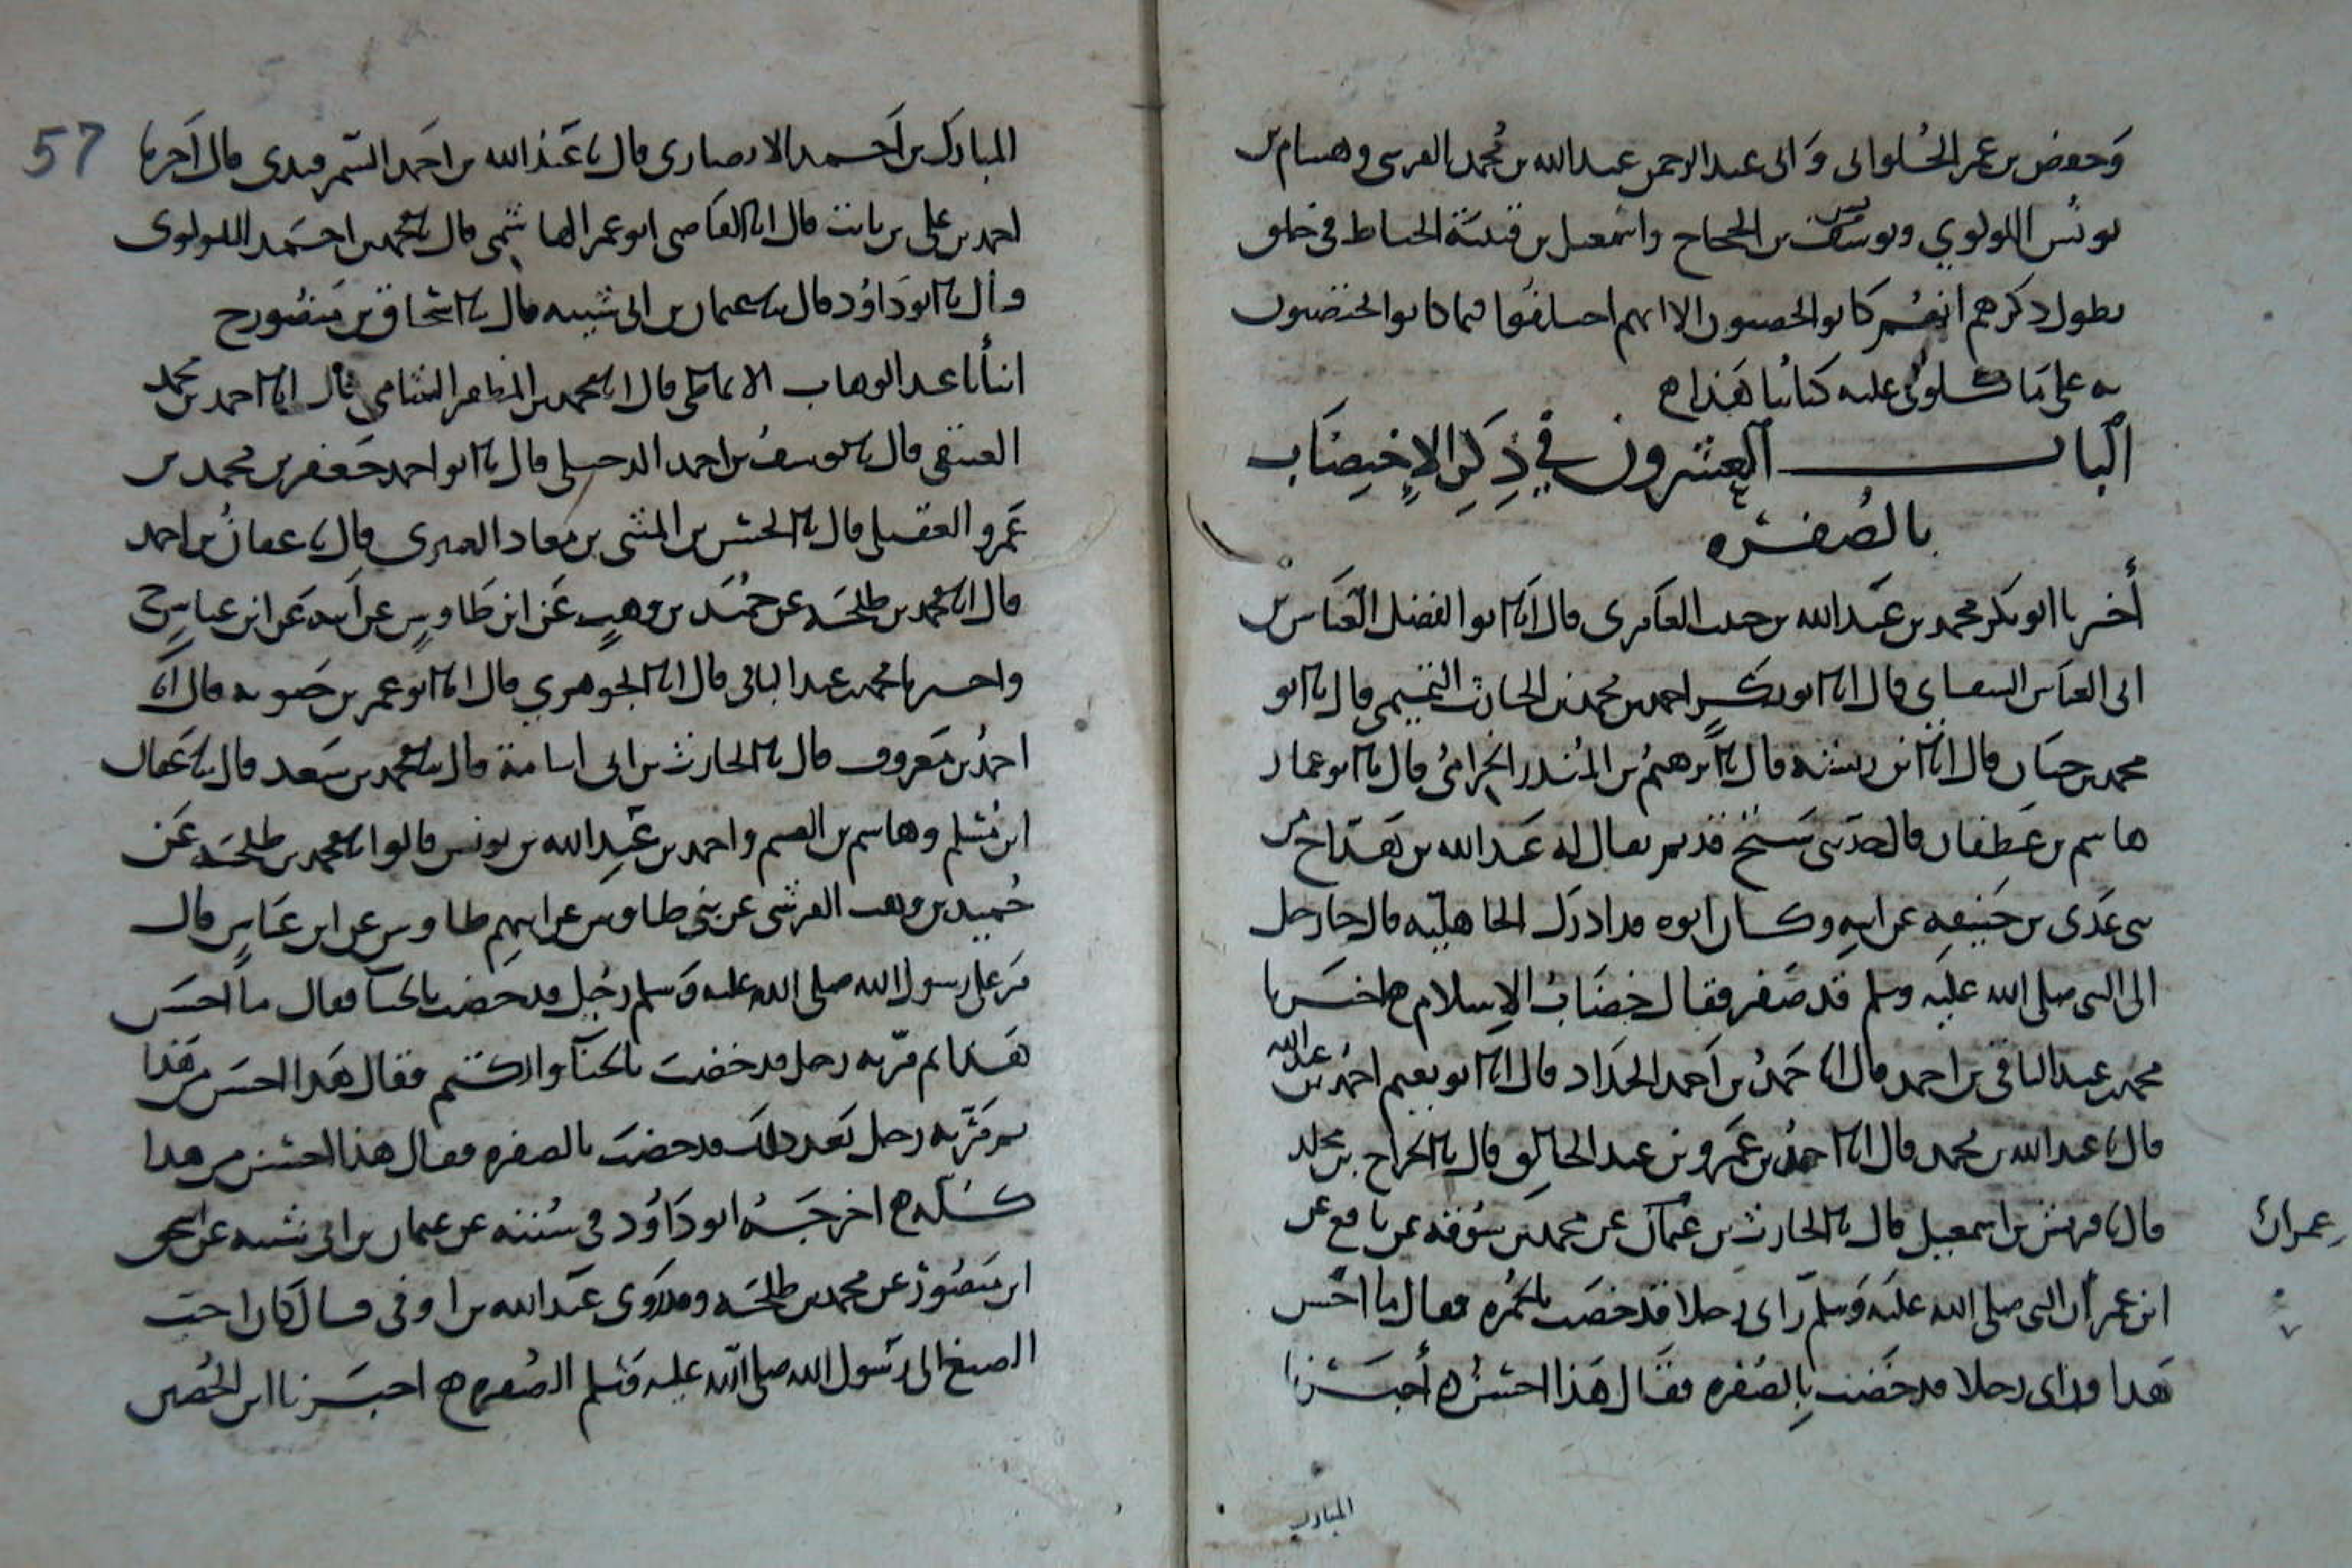 وحفص بن عمر الحلوانى وابى عبد الرحمن عبد الله بن محمد القرسى وهسام بن
يونس اللولوي ويوسف بن الحجاح واسمعيل بن قتيبة الحياط في خلق
يطول ذكرهم انهم كانوا يخضبون الا انهم اختلفوا فيما كانوا يخضبون
به على ما يتلوى عليه كتابنا هذا ه
الباب العشرون في ذكر الاختضاب
بالصفره
أخبرنا ابو بكر محمد بن عبد الله بن حبيب العامرى قال انا ابو الفضل العباس بن
ابى العباس الشقاني قال انا ابو بكر احمد بن محمد بن الحارث التميمى قال نا ابو
محمد بن حيان قال انا ابن رسته قال نا ابرهيم بن المنذر الحزامى قال نا ابو عمار
هاسم بن غطفان قال حدثنى شيخ قديم يقال له عبد الله بن هداج من
بنى عدى بن حنيفه عن ابيه وكان ابوه قد ادرك الجاهليه قال جا رجل
الى النبى صلى الله عليه وسلم قد صفر فقال خضاب الاسلام ه اخبرنا
محمد بن عبد الباقى بن احمد قال انا حمد بن احمد الحداد قال انا ابو نعيم احمد بن عبد الله
قال نا عبد الله بن محمد قال انا احمد بن عمرو بن عبد الخالق قال نا الجراح بن مخلد
قال نا قريش بن اسمعيل قال نا الحارث بن عمران عن محمد بن سوقه عن نافع عن
عمران
ابن عمر ان النبى صلى الله عليه وسلم راى رجلا قد خضب بالحمره فقال ما احسن
هذا وراى رجلا قد خضب بالصفره فقال هذا احسن ه أخبرنا
المبارك
57
المبارك بن احمد الانصارى قال نا عبد الله بن احمد السمرقندى قال اخبرنا
احمد بن على بن ثابت قال انا القاضى ابو عمر الهاشمى قال نا محمد بن احمد اللولوى
قال نا ابو داود قال نا عثمان بن ابى شيبه قال نا اسحاق بن منصور ح
انبأنا عبد الوهاب الانماطى قال انا محمد بن المظفر الشامى قال انا احمد بن محمد
العتيقى قال نا يوسف بن احمد الدخيلى قال نا ابو احمد جعفر بن محمد بن
عمرو العقيلى قال نا الحسن بن المثنى بن معاذ العنبرى قال نا عفان بن احمد
قال انا محمد بن طلحه عن حميد بن وهب عن ابن طاوس عن أبيه عن ابن عباس ح
واخبرنا محمد بن عبد الباقى قال انا الجوهري قال انا ابو عمر بن حيويه قال انا
احمد بن معروف قال نا الحارث بن ابى اسامة قال نا محمد بن سعد قال نا عفان
ابن مسلم وهاسم بن القسم واحمد بن عبد الله بن يونس قالوا نا محمد بن طلحه عن
حميد بن وهب القرشى عن بنى طاوس عن ابيهم طاوس عن ابن عباس قال
مر على رسول الله صلى الله عليه وسلم رجل قد خضب بالحنا فقال ما احسن
هذا ثم مر به رجل قد خضب بالحنا والكتم فقال هذا احسن من هذا
ثم مر به رجل بعد ذلك قد خضب بالصفره فقال هذا احسن من هذا
كله ه اخرجه ابو داود في سننه عن عثمان بن ابى شيبه عن اسحق
ابن منصور عن محمد بن طلحه وقد روى عبد الله بن اوفى قال كان احب
الصبغ الى رسول الله صلى الله عليه وسلم الصفره ه اخبرنا ابن الحصين